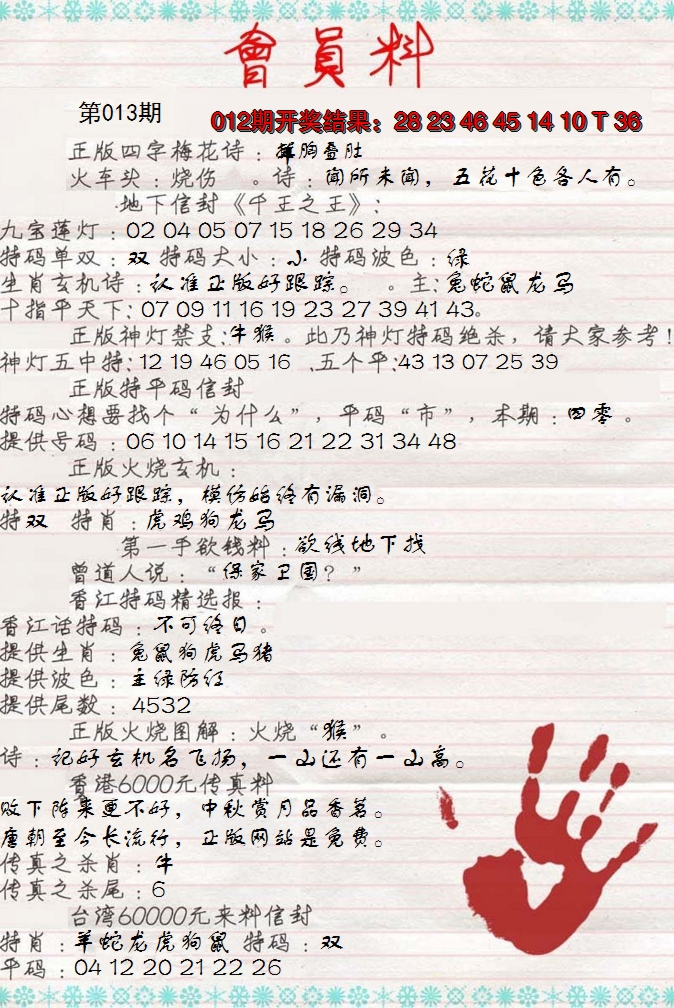 會員料
第013期
012期开奖结果：28 23 46 45 14 10 T 36
正版四字梅花诗：挥胸叠肚
火车头：烧伤 。诗：闻所未闻，五花十色各人有。
地下信封《千王之王》：
九宝莲灯：02 04 05 07 15 18 26 29 34
特码单双：双 特码大小：小 特码波色：绿
生肖玄机诗：认准正版好跟踪。 。主：兔蛇鼠龙马
十指平天下：07 09 11 16 19 23 27 39 41 43。
正版神灯禁支：牛猴。此乃神灯特码绝杀，请大家参考！
神灯五中特：12 19 46 05 16 .五个平：43 13 07 25 39
正版特平码信封
特码心想要找个“为什么”，平码“市”，本期：四零。
提供号码：06 10 14 15 16 21 22 31 34 48
正版火烧玄机：
认准正版好跟踪，模仿始终有漏洞。
特双 特肖：虎鸡狗龙马
第一手欲钱料：欲钱地下找
曾道人说：“保家卫国？”
香江特码精选报：
香江话特码：不可终日。
提供生肖：兔鼠狗虎马猪
提供波色：主绿防红
提供尾数：4532
正版火烧图解：火烧“猴”。
诗：记好玄机名飞扬，一山还有一山高。
香港6000元传真料
败下阵来更不好，中秋赏月品香茗。
唐朝至今长流行，正版网站是免费。
传真之杀肖：牛
传真之杀尾：6
台湾60000元来料信封
特肖：羊蛇龙虎狗鼠 特码：双
平码：04 12 20 21 22 26